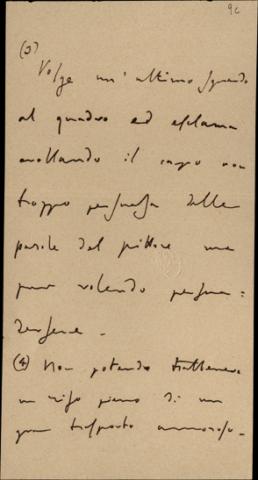 9c
(3)
Volge un' ultimo sguardo
al quadro ed esclama
crollando il capo non
troppo persuasa delle
parole del pittore ma
pur volendo persua=
dersene.
(4) Non potendo trattenere
un riso pieno di un
gran trasporto amoroso.